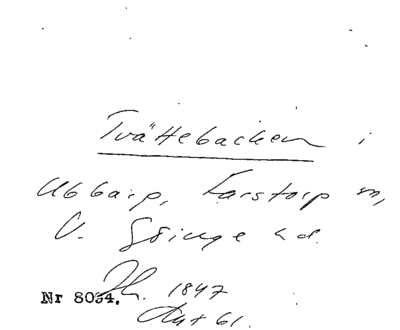 Tvättebacken i
Ubbarp, Farstorp sn,
V. Göinge hd.
Nr 8034. Jh. 1847
Akt 61.